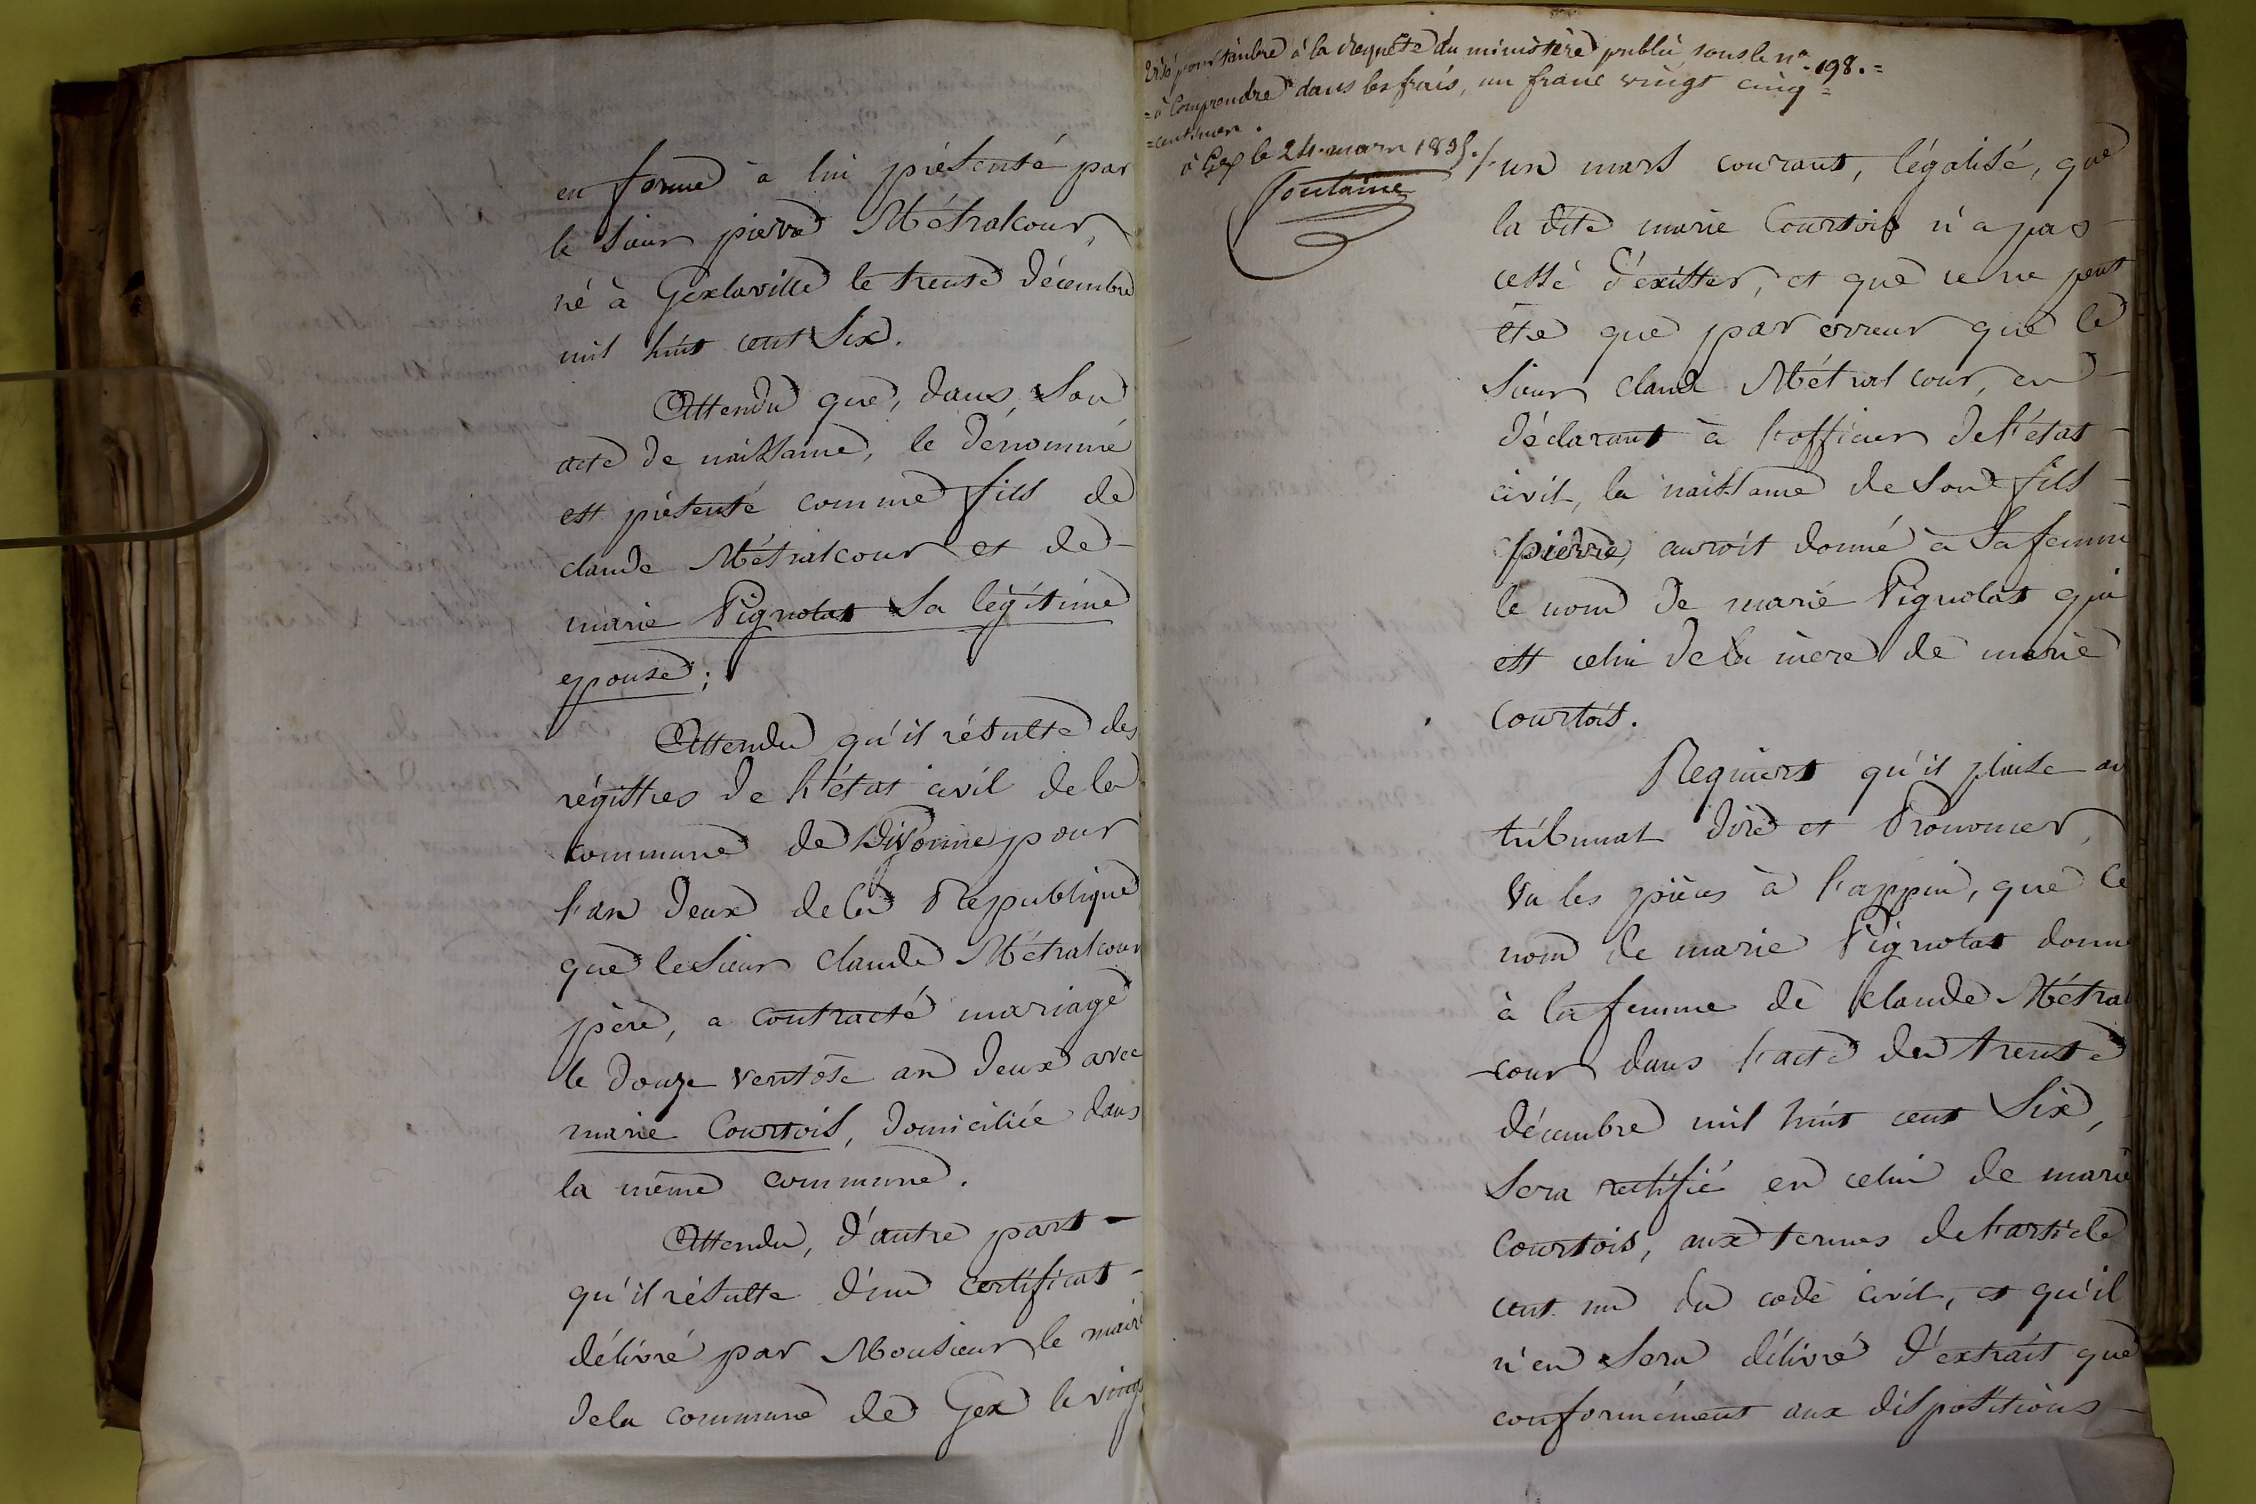 en forme à lui présenté par
le sieur pierre Métralcour,
né à Gexlaville le trente décembre
mil huit cent six.
Attendu que, dans son
acte de naissance, le denommé
est présenté comme fils de
claude Métralcour et de
marie Pignolat sa légitime
epouse;
Attendu qu'il résulte des
régistres de l'état civil de la
commune de Divonne pour
l'an deux de la Republique
que le sieur claude Métralcour
père, a contracté mariage
le douze ventôse an deux avec
marie Courtois, domiciliée dans
la même commune.
Attendu, d'autre part
qu'il résulte d'un certificat
délivré par Monsieur le maire
de la commune de Gex le vingt
Visé pour timbre à la requête du ministère public sous le n° 198.=
=à Comprendre dans les frais, un franc vingt cinq=
=centimes.
à Gex le 24 mars 1835./.
Fontaine
un mars courant, légalisé, que
la dite marie Courtois n'a pas
cessé d'éxister, et que ce ne peut
être que par erreur que le
sieur claude Métralcour, en
déclarant à l'officier de l'état
civil, la naissance de son fils
pierre, auroit donné à sa femme
le nom de marie Pignolat qui
est celui de la mère de marie
Courtois.
Requiert qu'il plaise au
tribunal dire et Prononcer,
Vu les pièces à l'appui, que le
nom de marie Pignolat donné
à la femme de claude Métral
-cour dans l'acte du trente
décembre mil huit cent six,
sera rectifié en celui de marie
Courtois, aux termes de l'article
cent un du code civil, et qu'il
n'en sera délivré d'extrait que
conformément aux dispositions